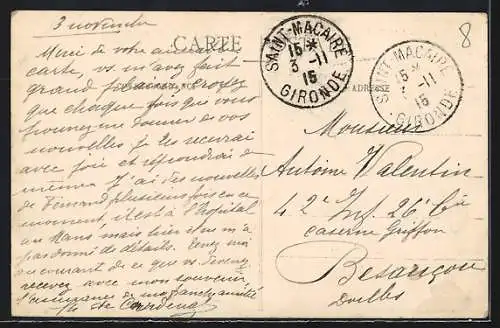 3 novembre
Merci de votre aimable
carte, vs m'avez fait
grand plaisir croyez
que chaque fois que vous
pourrez me donner de vos
nouvelles je les recevrai
avec joie et répondrai de
même. J'ai des nouvelles
de Fernand plusieurs fois en ce
moment, il est à l'hôpital
au Mans mais hier il ne m'a
pas donné de détails. Tenez moi
au courant de ce que vs devenez
recevez avec mon souvenir,
l'assurance de ma franche amitié
CARTE
SAINT-MACAIRE
15 *
3 -11
15
GIRONDE
SAINT-MACAIRE
15 *
-11
15
GIRONDE
8
ADRESSE
Monsieur
Antoine Valentin
42e Inf. 26e Cie
caserne Griffon
Besançon
Doubs